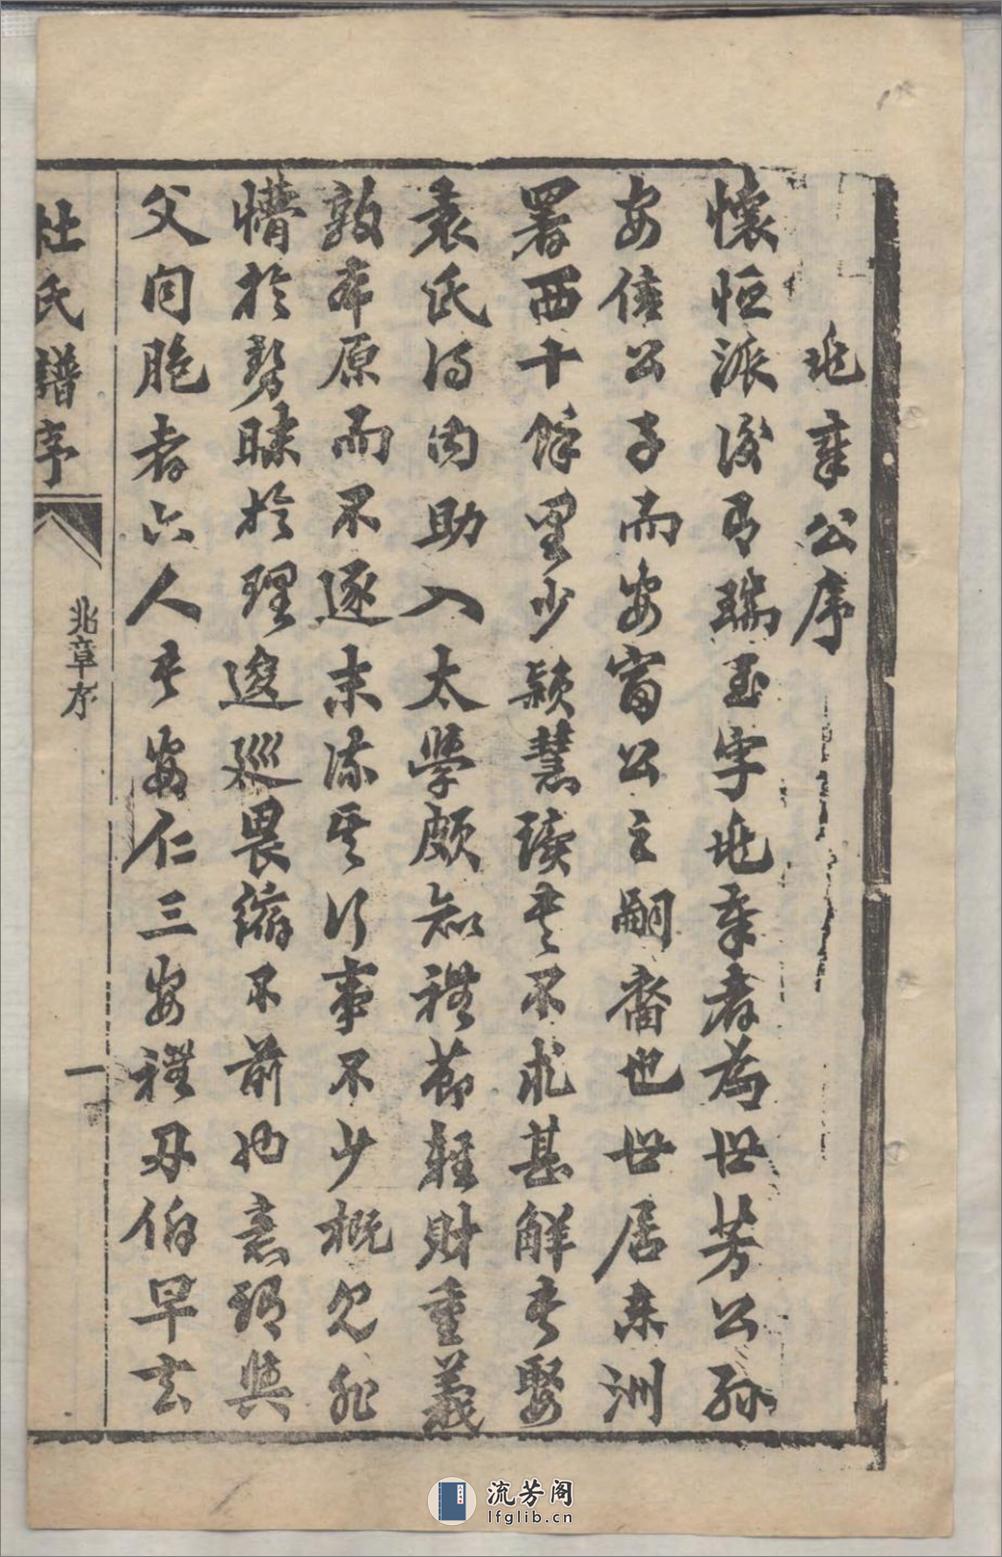 兆章公序
懷恒派後有瑞玉字兆章者為世芳公孫
安佳公子而安富公之嗣裔也世居來洲
署西十餘里少穎慧讀書不求甚解長娶
袁氏得內助入太學頗知禮節輕財重義
敦本原而不逐末流其行事不少概見非
懵於勢昧於理逡巡畏縮不前也意謂與
父同胞者六人長安仁三安禮丹伯早去
杜氏譜序
兆章序
一
流芳阁
lfglib.cn